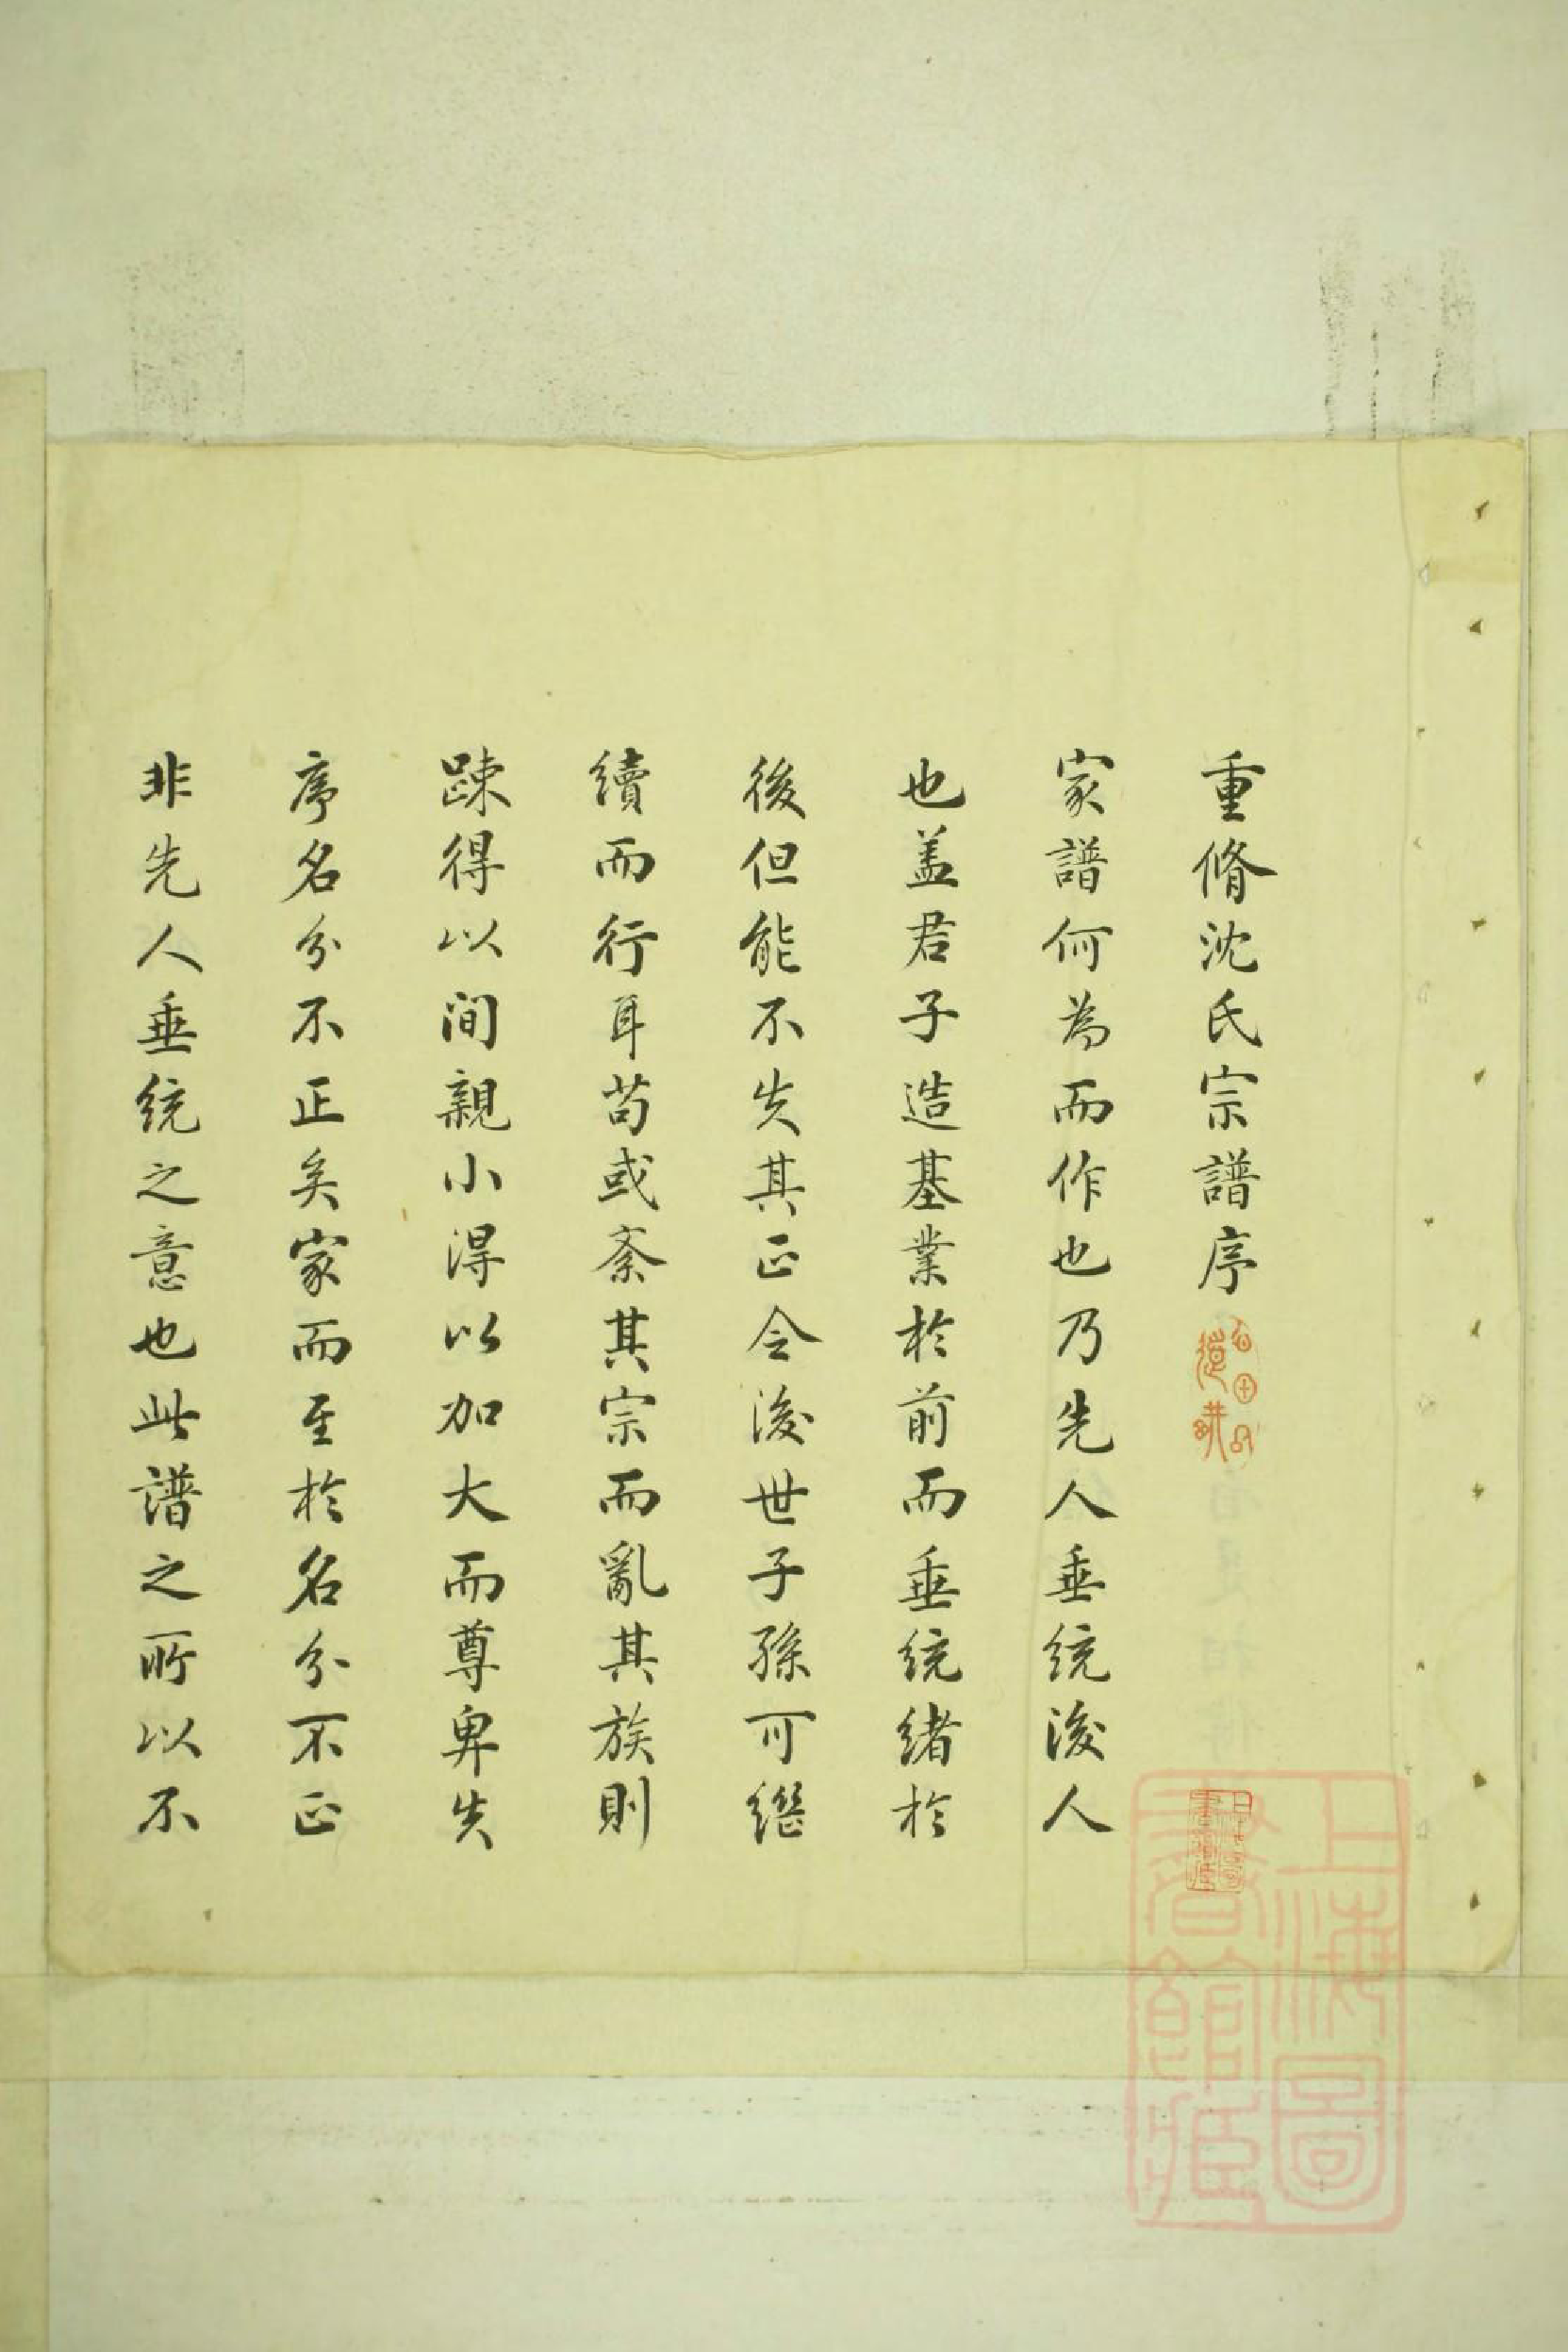 重脩沈氏宗譜序
家譜何為而作也乃先人垂統後人
也盖君子造基業於前而垂統緒於
後但能不失其正令後世子孫可繼
續而行耳苟或紊其宗而亂其族則
踈得以间親小得以加大而尊卑失
序名分不正矣家而至於名分不正
非先人垂統之意也此譜之所以不
上海圖
書館藏